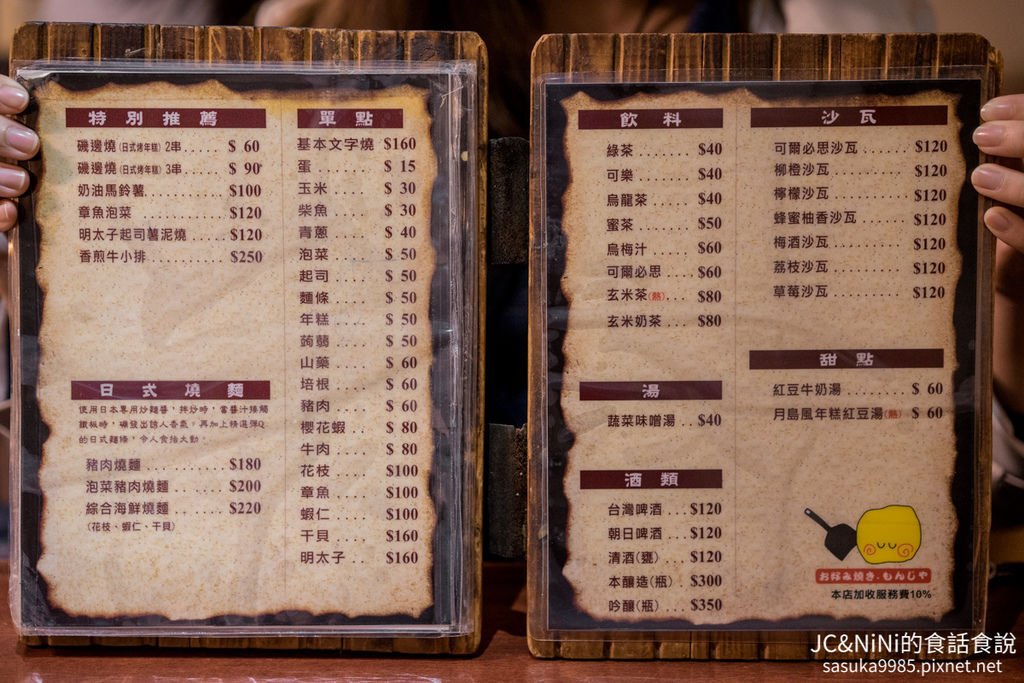 特別推薦
磯邊燒(日式烤年糕) 2串.....$ 60
磯邊燒(日式烤年糕) 3串.....$ 90
奶油馬鈴薯............$100
章魚泡菜 ............$120
明太子起司薯泥燒.....$120
香煎牛小排...........$250
日式燒麵
使用日本專用炒麵醬,拌炒時,當醬汁接觸
鐵板時,噴發出誘人香氣,再加上精選彈Q
的日式麵條,令人食指大動
豬肉燒麵 ...........$180
泡菜豬肉燒麵 .......$200
綜合海鮮燒麵 .......$220
(花枝、蝦仁、干貝)
單點
基本文字燒 $160
蛋 ..... $ 15
玉米 .... $ 30
柴魚 .... $ 30
青蔥 .... $ 40
泡菜 .... $ 50
起司 .... $ 50
麵條 .... $ 50
年糕 .... $ 50
蒟蒻 .... $ 50
山藥 .... $ 60
培根 .... $ 60
豬肉 .... $ 60
櫻花蝦 ... $ 80
牛肉 .... $ 80
花枝 .... $100
章魚 .... $100
蝦仁 .... $100
干貝 .... $160
明太子 .. $160
飲料
綠茶 ....... $40
可樂 ....... $40
烏龍茶 ..... $40
蜜茶 ....... $50
烏梅汁 ..... $60
可爾必思 ... $60
玄米茶(熱)... $80
玄米奶茶 ... $80
湯
蔬菜味噌湯 .. $40
酒類
台灣啤酒 ...$120
朝日啤酒 ...$120
清酒(甕) ...$120
本釀造(瓶) .$300
吟釀(瓶) ...$350
沙瓦
可爾必思沙瓦 ......$120
柳橙沙瓦 .........$120
檸檬沙瓦 .........$120
蜂蜜柚香沙瓦 ......$120
梅酒沙瓦 .........$120
荔枝沙瓦 .........$120
草莓沙瓦 .........$120
甜點
紅豆牛奶湯 ........ $ 60
月島風年糕紅豆湯(熱) $ 60
お好み燒き.もんじゃ
本店加收服務費10%
JC&NiNi的食話食說
sasuka9985.pixnet.net